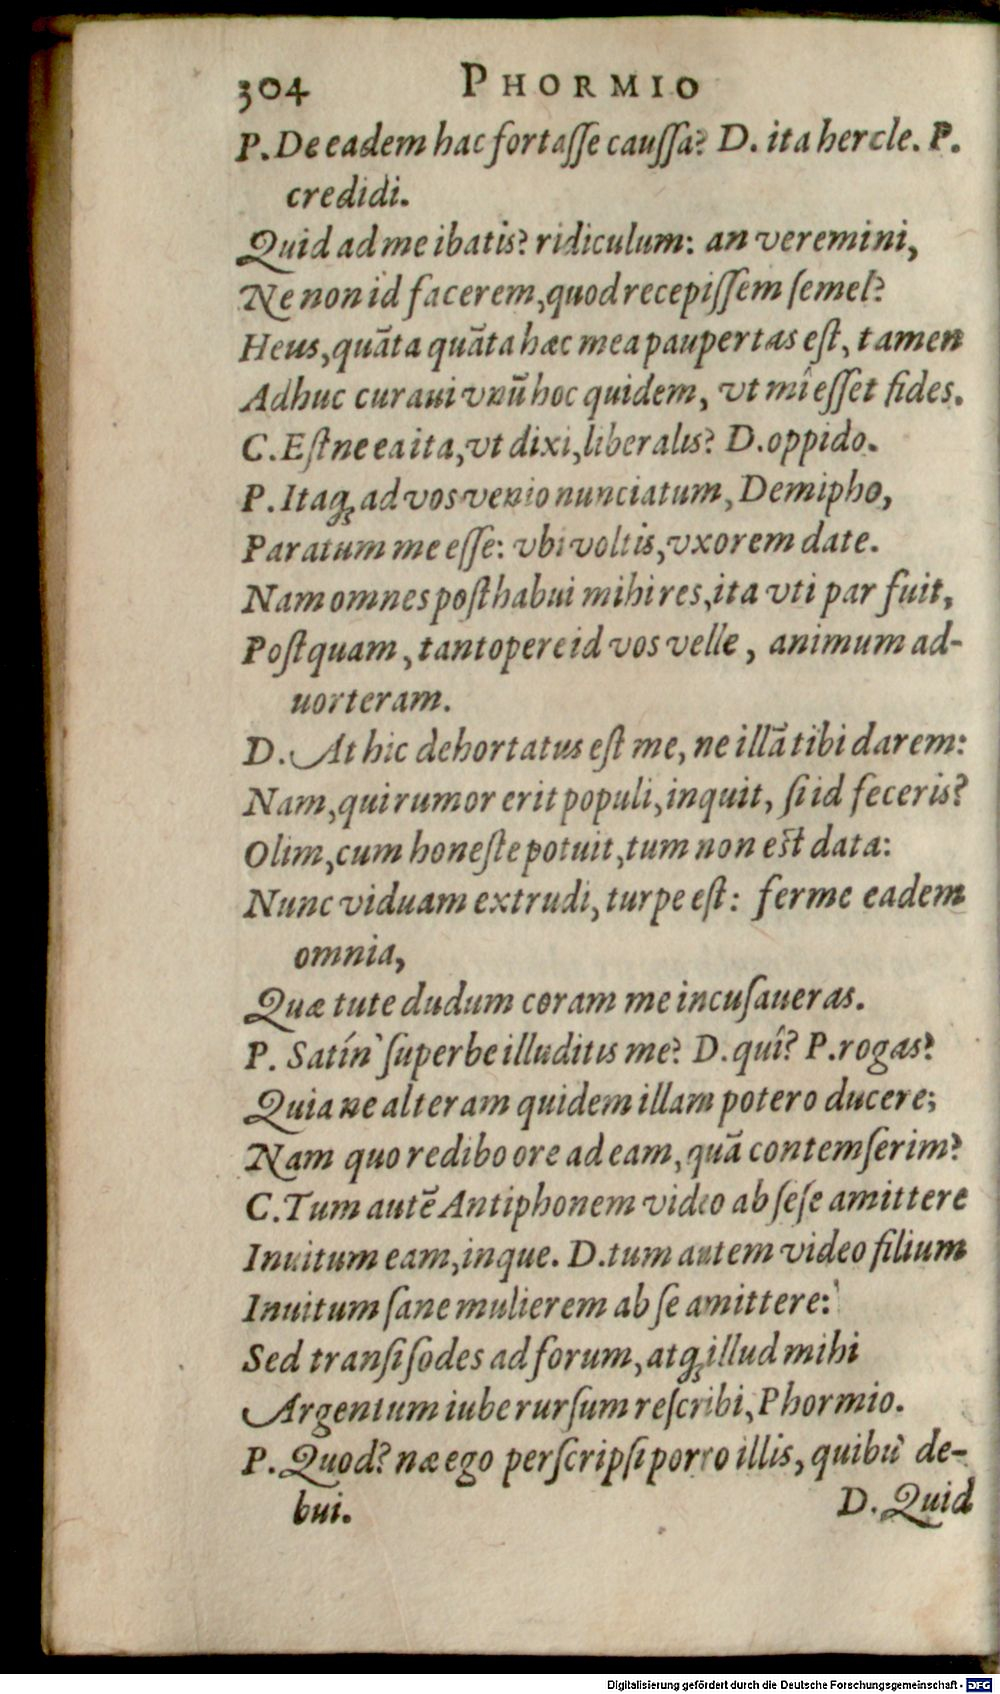 304 PHORMIO
P. De eadem hac fortaſſe cauſſa? D. ita hercle. P.
credidi.
Quid ad me ibatis? ridiculum: an veremini,
Ne non id facerem, quod recepiſſem ſemel?
Heus, quāta quāta hæc mea paupertas eſt, tamen
Adhuc curaui vnū hoc quidem, vt mî eſſet fides.
C. Eſtne ea ita, vt dixi, liberalis? D. oppido.
P. Itaq; ad vos venio nunciatum, Demipho,
Paratum me eſſe: vbi voltis, vxorem date.
Nam omnes poſthabui mihi res, ita vti par fuit,
Poſtquam, tantopere id vos velle, animum ad-
uorteram.
D. At hic dehortatus eſt me, ne illā tibi darem:
Nam, qui rumor erit populi, inquit, ſi id feceris?
Olim, cum honeſte potuit, tum non eſt data:
Nunc viduam extrudi, turpe eſt: ferme eadem
omnia,
Quæ tute dudum coram me incuſaueras.
P. Satín' ſuperbe illuditis me? D. quî? P. rogas?
Quia ne alteram quidem illam potero ducere;
Nam quo redibo ore ad eam, quā contemſerim?
C. Tum autē Antiphonem video ab ſeſe amittere
Inuitum eam, inque. D. tum autem video filium
Inuitum ſane mulierem ab ſe amittere:
Sed tranſi ſodes ad forum, atq; illud mihi
Argentum iube rurſum reſcribi, Phormio.
P. Quod? næ ego perſcripſi porro illis, quibu' de-
bui.
D. Quid
Digitalisierung gefördert durch die Deutsche Forschungsgemeinschaft - DFG